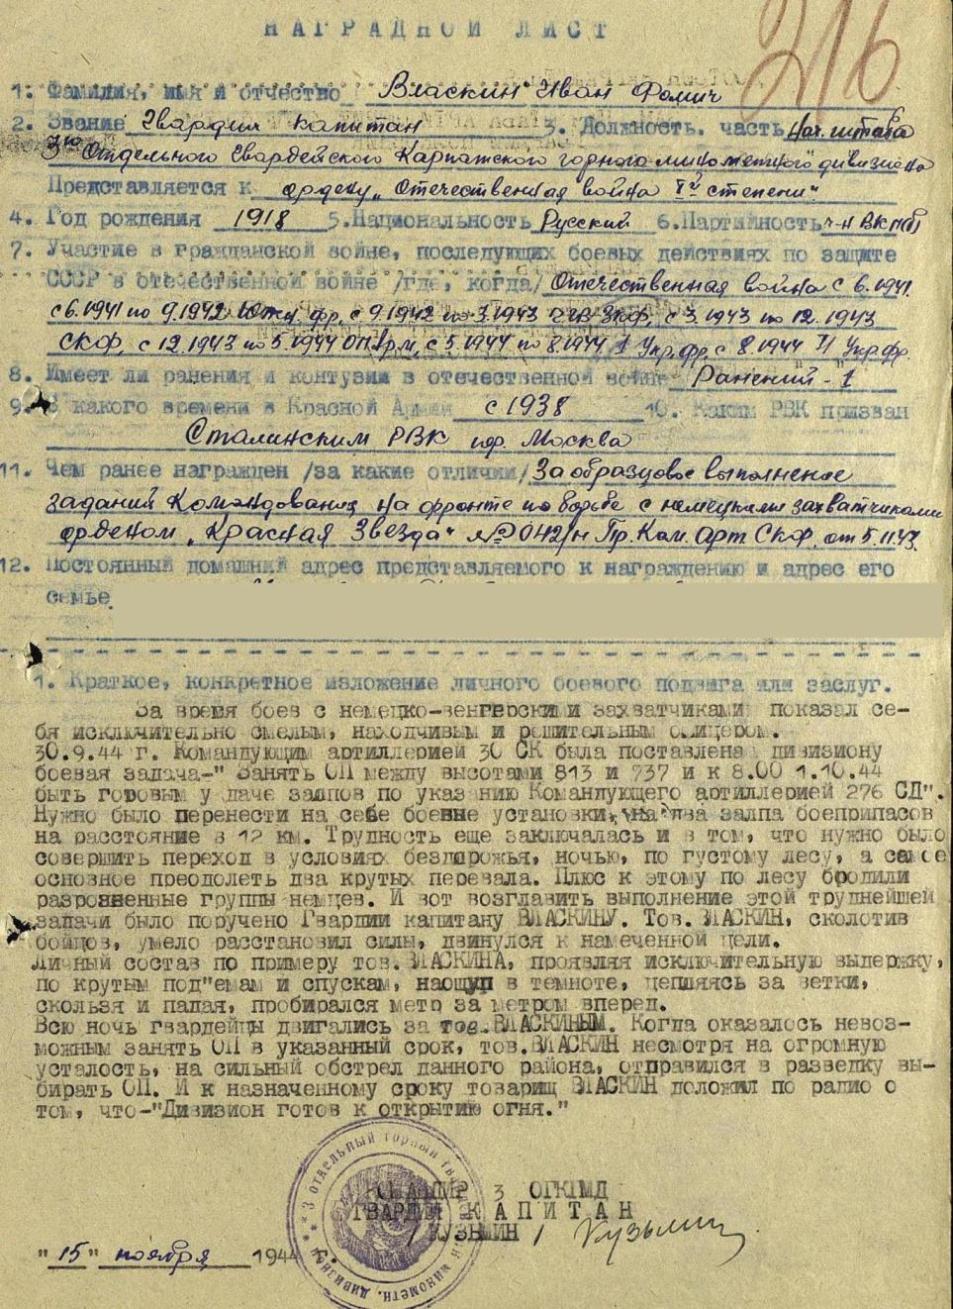 НАГРАДНОЙ ЛИСТ
316
1. Фамилия, имя и отчество Власкин Иван Фомич
2. Звание Гвардии капитан 3. Должность. часть Нач. штаба
3го Отдельного Гвардейского Карпатского горно минометного дивизиона
Представляется к ордену "Отечественная война II й степени"
4. Год рождения 1918 5. Национальность Русский 6. Партийность ч-н ВКП(б)
7. Участие в гражданской войне, последующих боевых действиях по защите
СССР в отечественной войне /где, когда/ Отечественная война с 6.1941.
с 6.1941 по 9.1942 Южн. фр., с 9.1942 по 3.1943 ЧГВ ЗКФ, с 3.1943 по 12.1943
СКФ, с 12.1943 по 5.1944 ОПАрм, с 5.1944 по 8.1944 1 Укр. фр. с 8.1944 IV Укр. фр.
8. Имеет ли ранения и контузии в отечественной войне Ранений - 1
9. С какого времени в Красной Армии с 1938 10. Каким РВК призван
Сталинским РВК гор. Москва
11. Чем ранее награжден /за какие отличия/ За образцовое выполнение
заданий Командования на фронте по борьбе с немецкими захватчиками
орденом "Красная Звезда" №042/н Пр. Ком. Арт СКФ. от 5.11.43.
12. Постоянный домашний адрес представляемого к награждению и адрес его
семье
1. Краткое, конкретное изложение личного боевого подвига или заслуг.
За время боев с немецко-венгерскими захватчиками показал се-
бя исключительно смелым, находчивым и решительным офицером.
30.9.44 г. Командующим артиллерией 30 СК была поставлена дивизиону
боевая задача-" Занять ОП между высотами 813 и 737 и к 8.00 1.10.44
быть готовым у даче залпов по указанию Командующего артиллерией 276 СД".
Нужно было перенести на себе боевые установки, на два залпа боеприпасов
на расстояние в 12 км. Трудность еще заключалась и в том, что нужно было
совершить переход в условиях бездорожья, ночью, по густому лесу, а самое
основное преодолеть два крутых перевала. Плюс к этому по лесу бродили
разрозненные группы немцев. И вот возглавить выполнение этой труднейшей
задачи было поручено Гвардии капитану ВЛАСКИНУ. Тов. ВЛАСКИН, сколотив
бойцов, умело расстановил силы, двинулся к намеченной цели.
Личный состав по примеру тов. ВЛАСКИНА, проявляя исключительную выдержку,
по крутым под"емам и спускам, наощуп в темноте, цепляясь за ветки,
скользя и падая, пробирался метр за метром вперед.
Всю ночь гвардейцы двигались за тов. ВЛАСКИНЫМ. Когда оказалось невоз-
можным занять ОП в указанный срок, тов. ВЛАСКИН несмотря на огромную
усталость, на сильный обстрел данного района, отправился в разведку вы-
бирать ОП. И к назначенному сроку товарищ ВЛАСКИН доложил по радио о
том, что-"Дивизион готов к открытию огня."
КОМАНДИР 3 ОГКГМД
ГВАРДИИ КАПИТАН
/ КУЗЬМИН / Кузьмин
"15" ноября 1944 г.
3 отдельный горный гвардейский минометн. дивизион